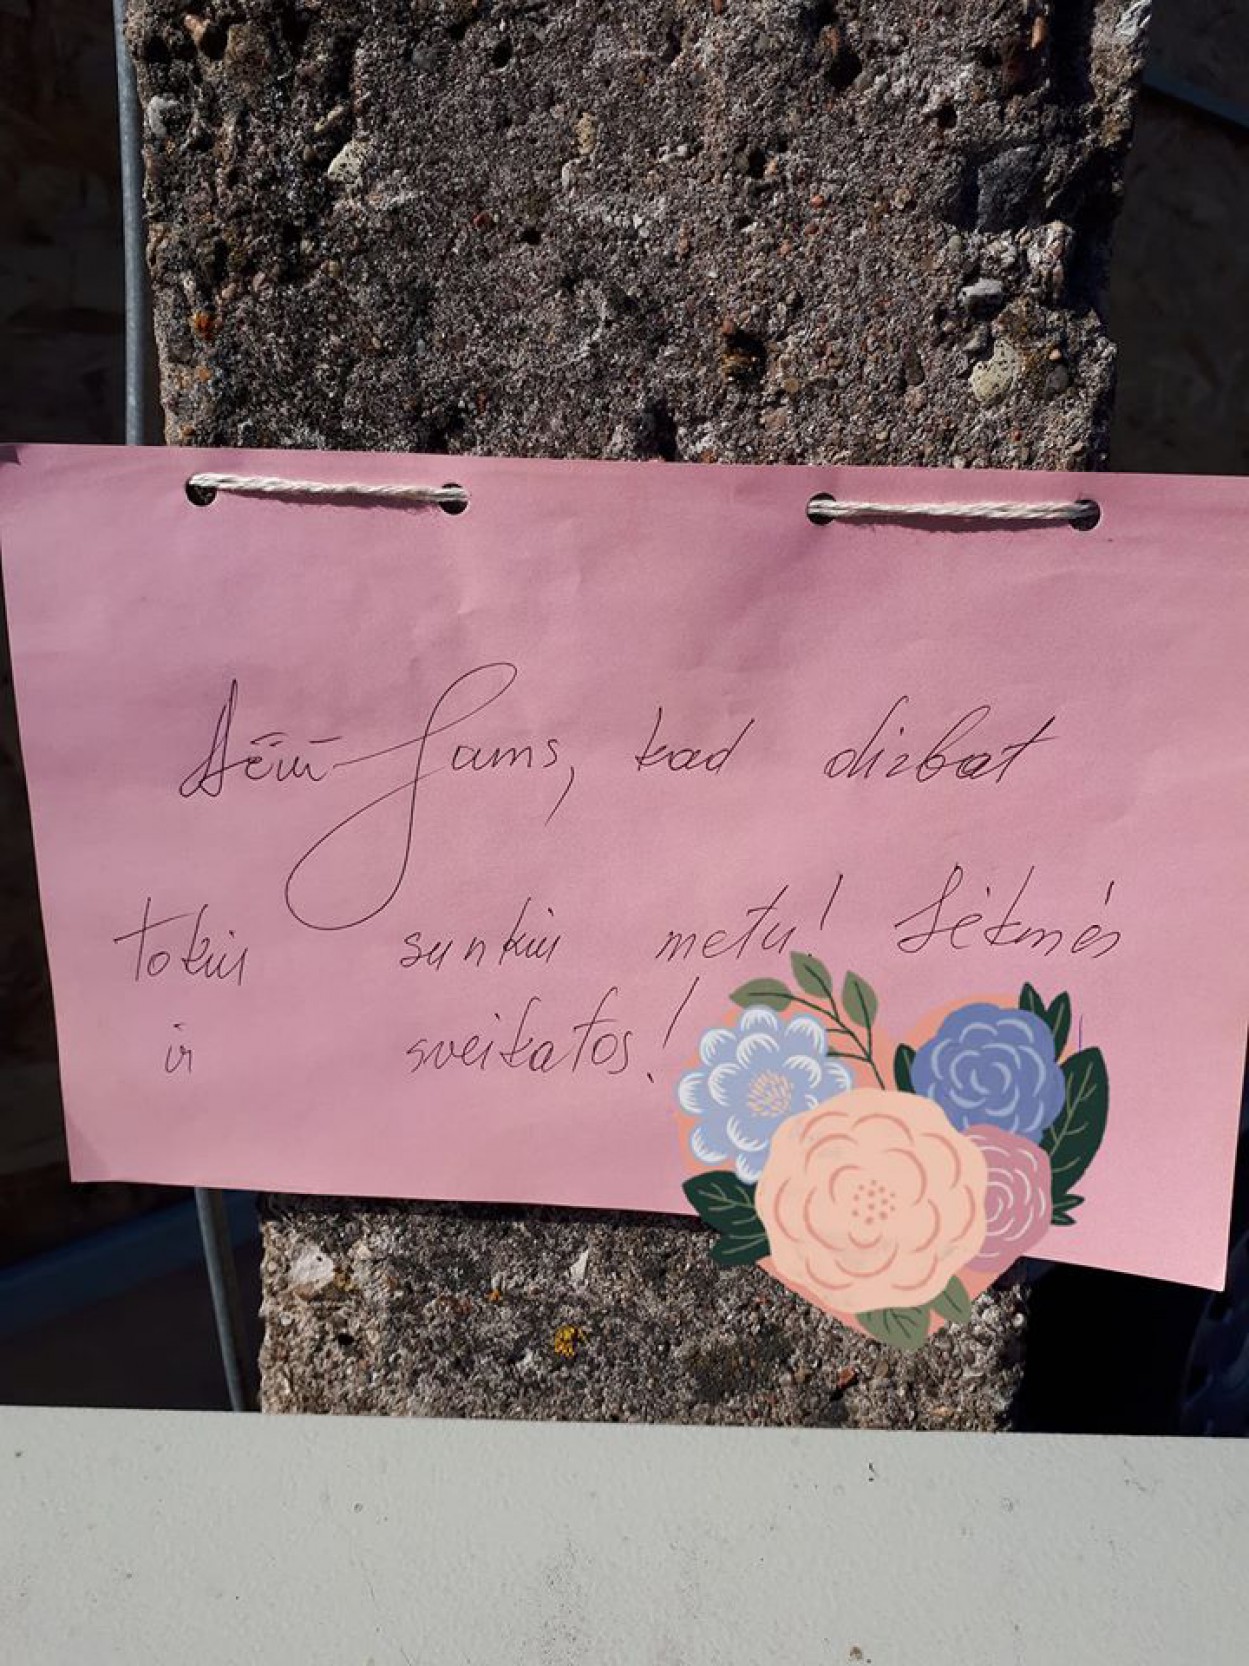 Ačiū Jums, kad dirbat
tokiu sunkiu metu! Sėkmės
ir sveikatos!